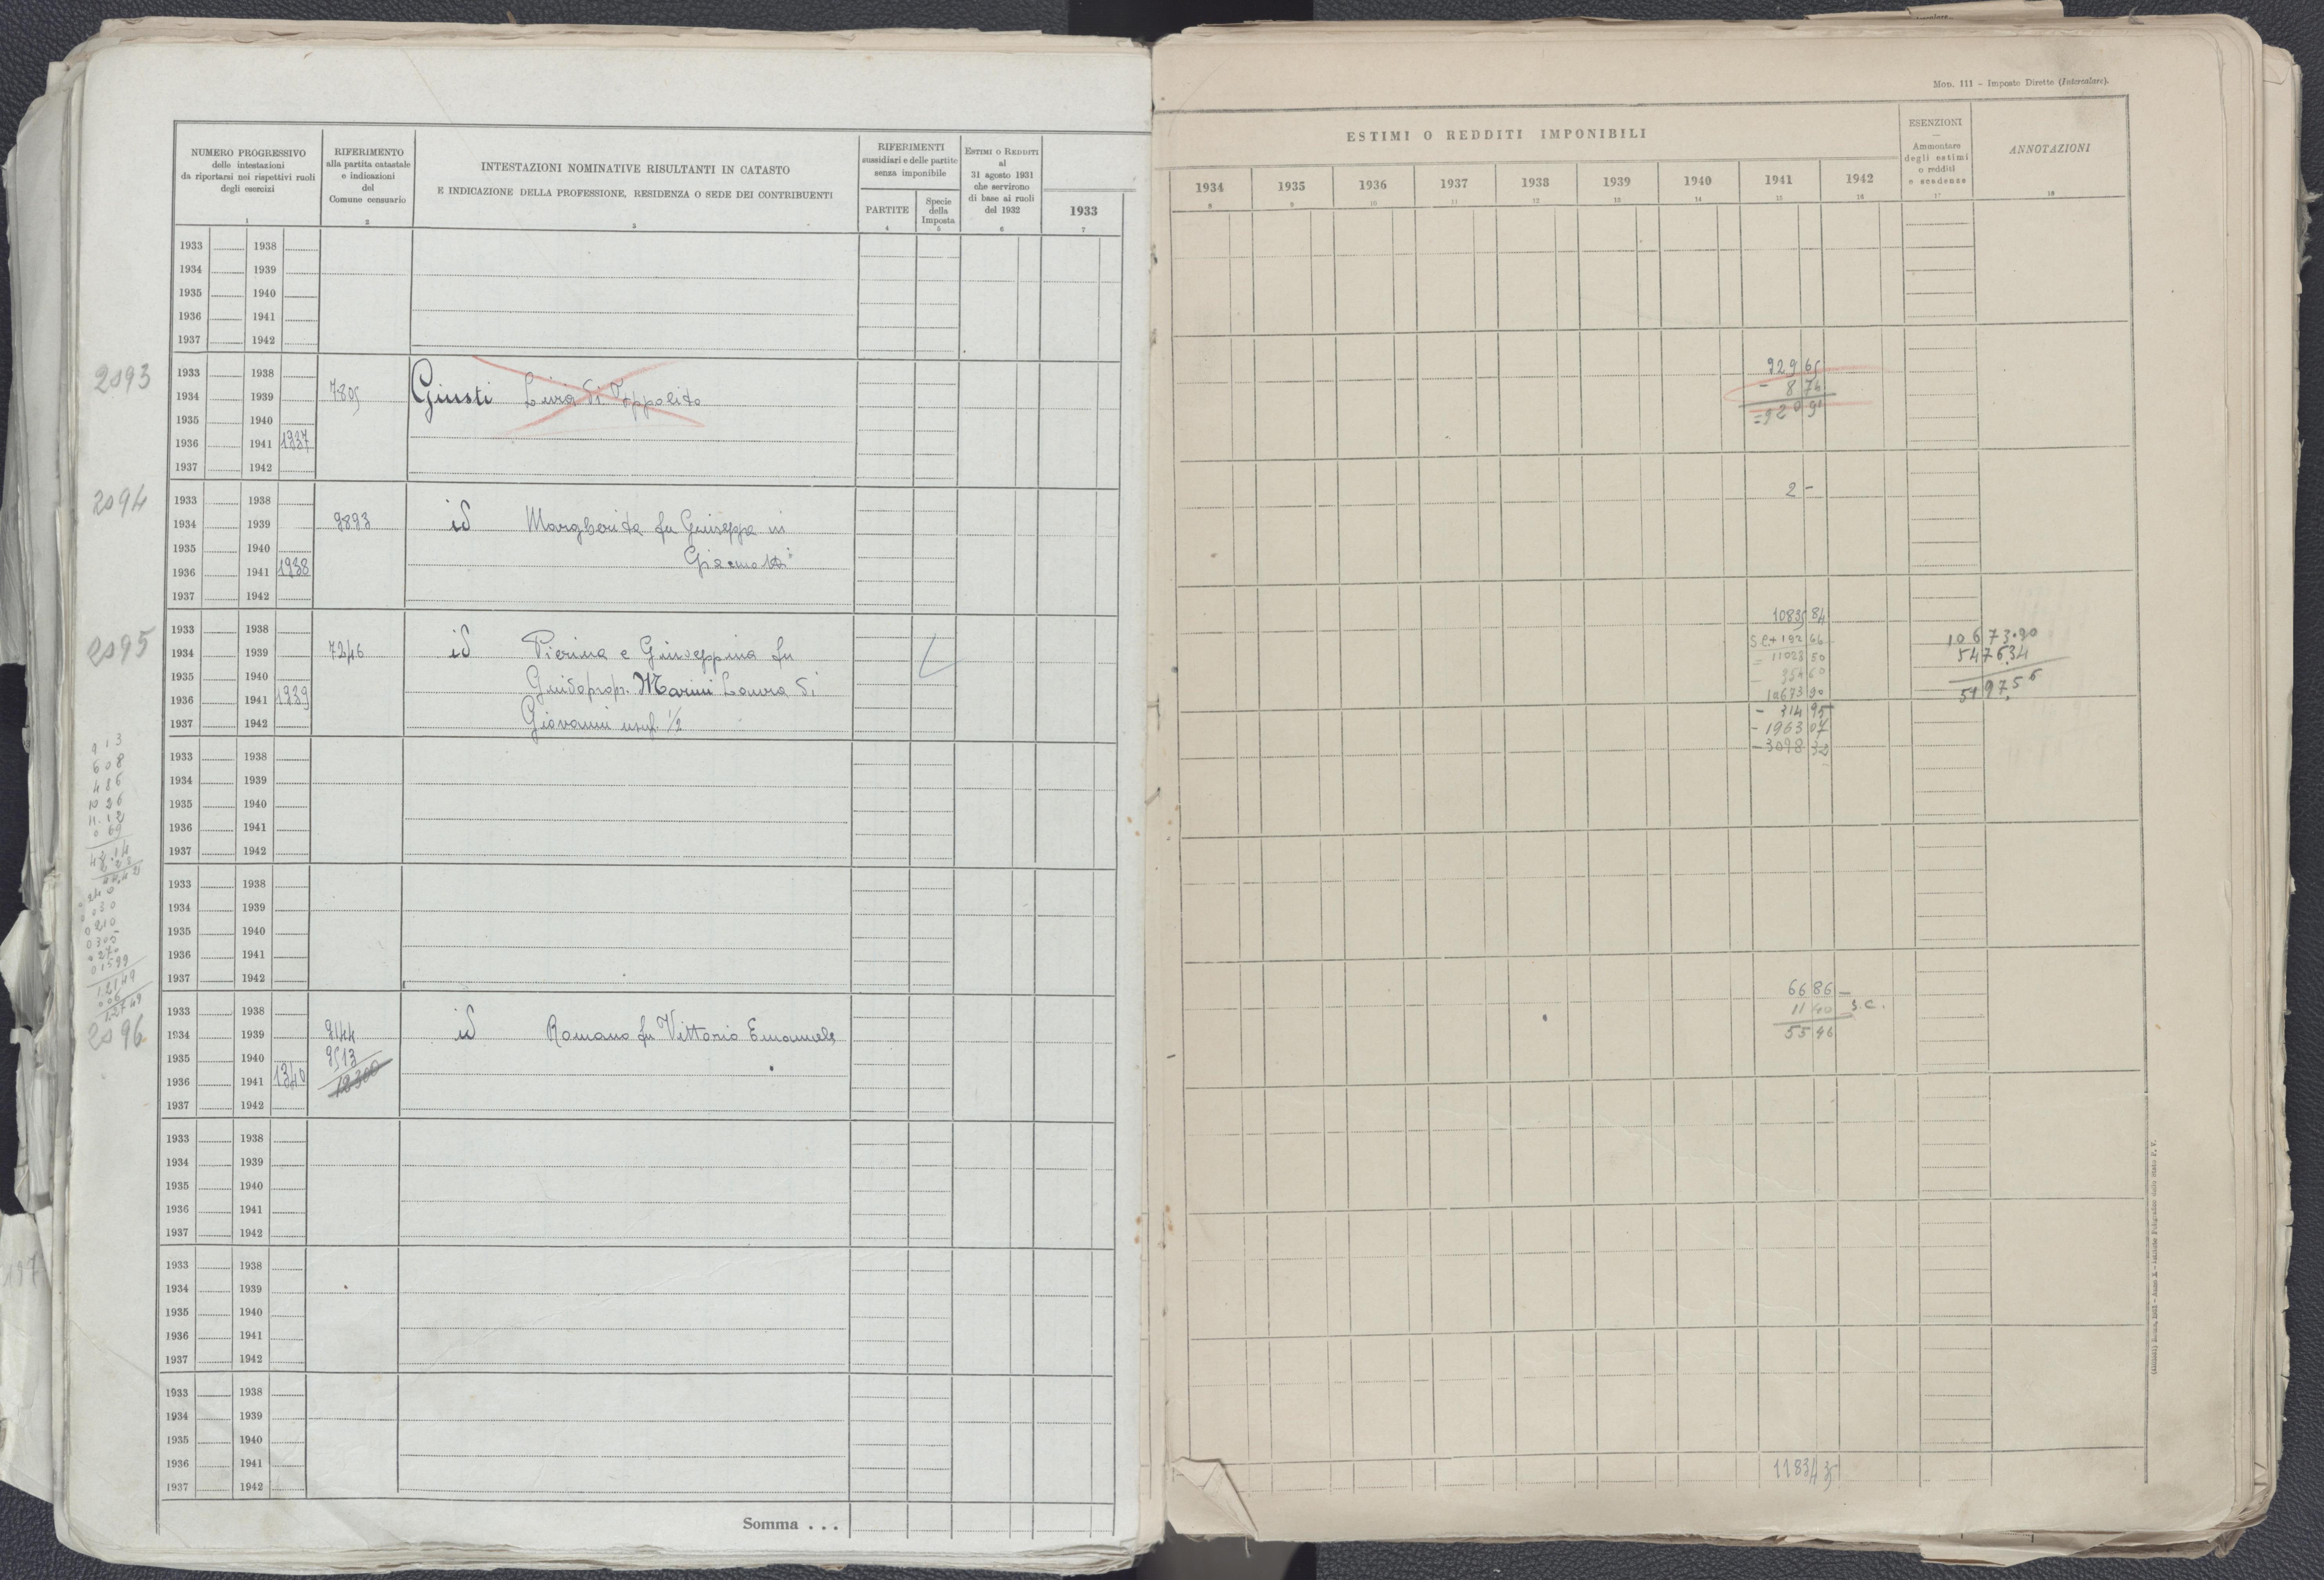 Mod. 111 - Imposte Dirette (Intercalare).
NUMERO PROGRESSIVO
delle intestazioni
da riportarsi nei rispettivi ruoli
degli esercizi
1
RIFERIMENTO
alla partita catastale
e indicazioni
del
Comune censuario
2
INTESTAZIONI NOMINATIVE RISULTANTI IN CATASTO
E INDICAZIONE DELLA PROFESSIONE, RESIDENZA O SEDE DEI CONTRIBUENTI
3
RIFERIMENTI
sussidiari e delle partite
senza imponibile
PARTITE
4
Specie
della
Imposta
5
ESTIMI O REDDITI
al
31 agosto 1931
che servirono
di base ai ruoli
del 1932
6
1933
7
ESTIMI O REDDITI IMPONIBILI
1934 1935 1936 1937 1938 1939 1940 1941 1942
8 9 10 11 12 13 14 15 16
ESENZIONI
—
Ammontare
degli estimi
o redditi
e scadenze
17
ANNOTAZIONI
18
1933 1938
1934 1939
1935 1940
1936 1941
1937 1942
2093
1933 1938
1934 1939 7805 Giusti Livia di Ippolito
1935 1940
1936 1941 1337
1937 1942
929 65
- 8 74
= 920 91
2094
1933 1938
1934 1939 9893 id Margherita fu Giuseppe in
1935 1940 Giacmotti
1936 1941 1338
1937 1942
2 -
2095
1933 1938
1934 1939 7246 id Pierina e Giuseppina fu
1935 1940 Guido propr. Marini Laura di
1936 1941 1339
1937 1942 Giovanni usuf. 1/2
10835 84
S.C. + 192 66
= 11028 50
- 354 60
10673 90
- 314 95
- 1963 07
- 3098 32
10673.90
5476.34
5197.56
913
608
486
1026
11.12
069
1933 1938
1934 1939
1935 1940
1936 1941
1937 1942
1933 1938
1934 1939
1935 1940
1936 1941
1937 1942
2096
1933 1938
1934 1939 9144 id Romano fu Vittorio Emanuele
1935 1940 9513
1936 1941 1340
1937 1942
66 86
11 40 S.C.
55 46
1933 1938
1934 1939
1935 1940
1936 1941
1937 1942
1933 1938
1934 1939
1935 1940
1936 1941
1937 1942
1933 1938
1934 1939
1935 1940
1936 1941
1937 1942
Somma . . .